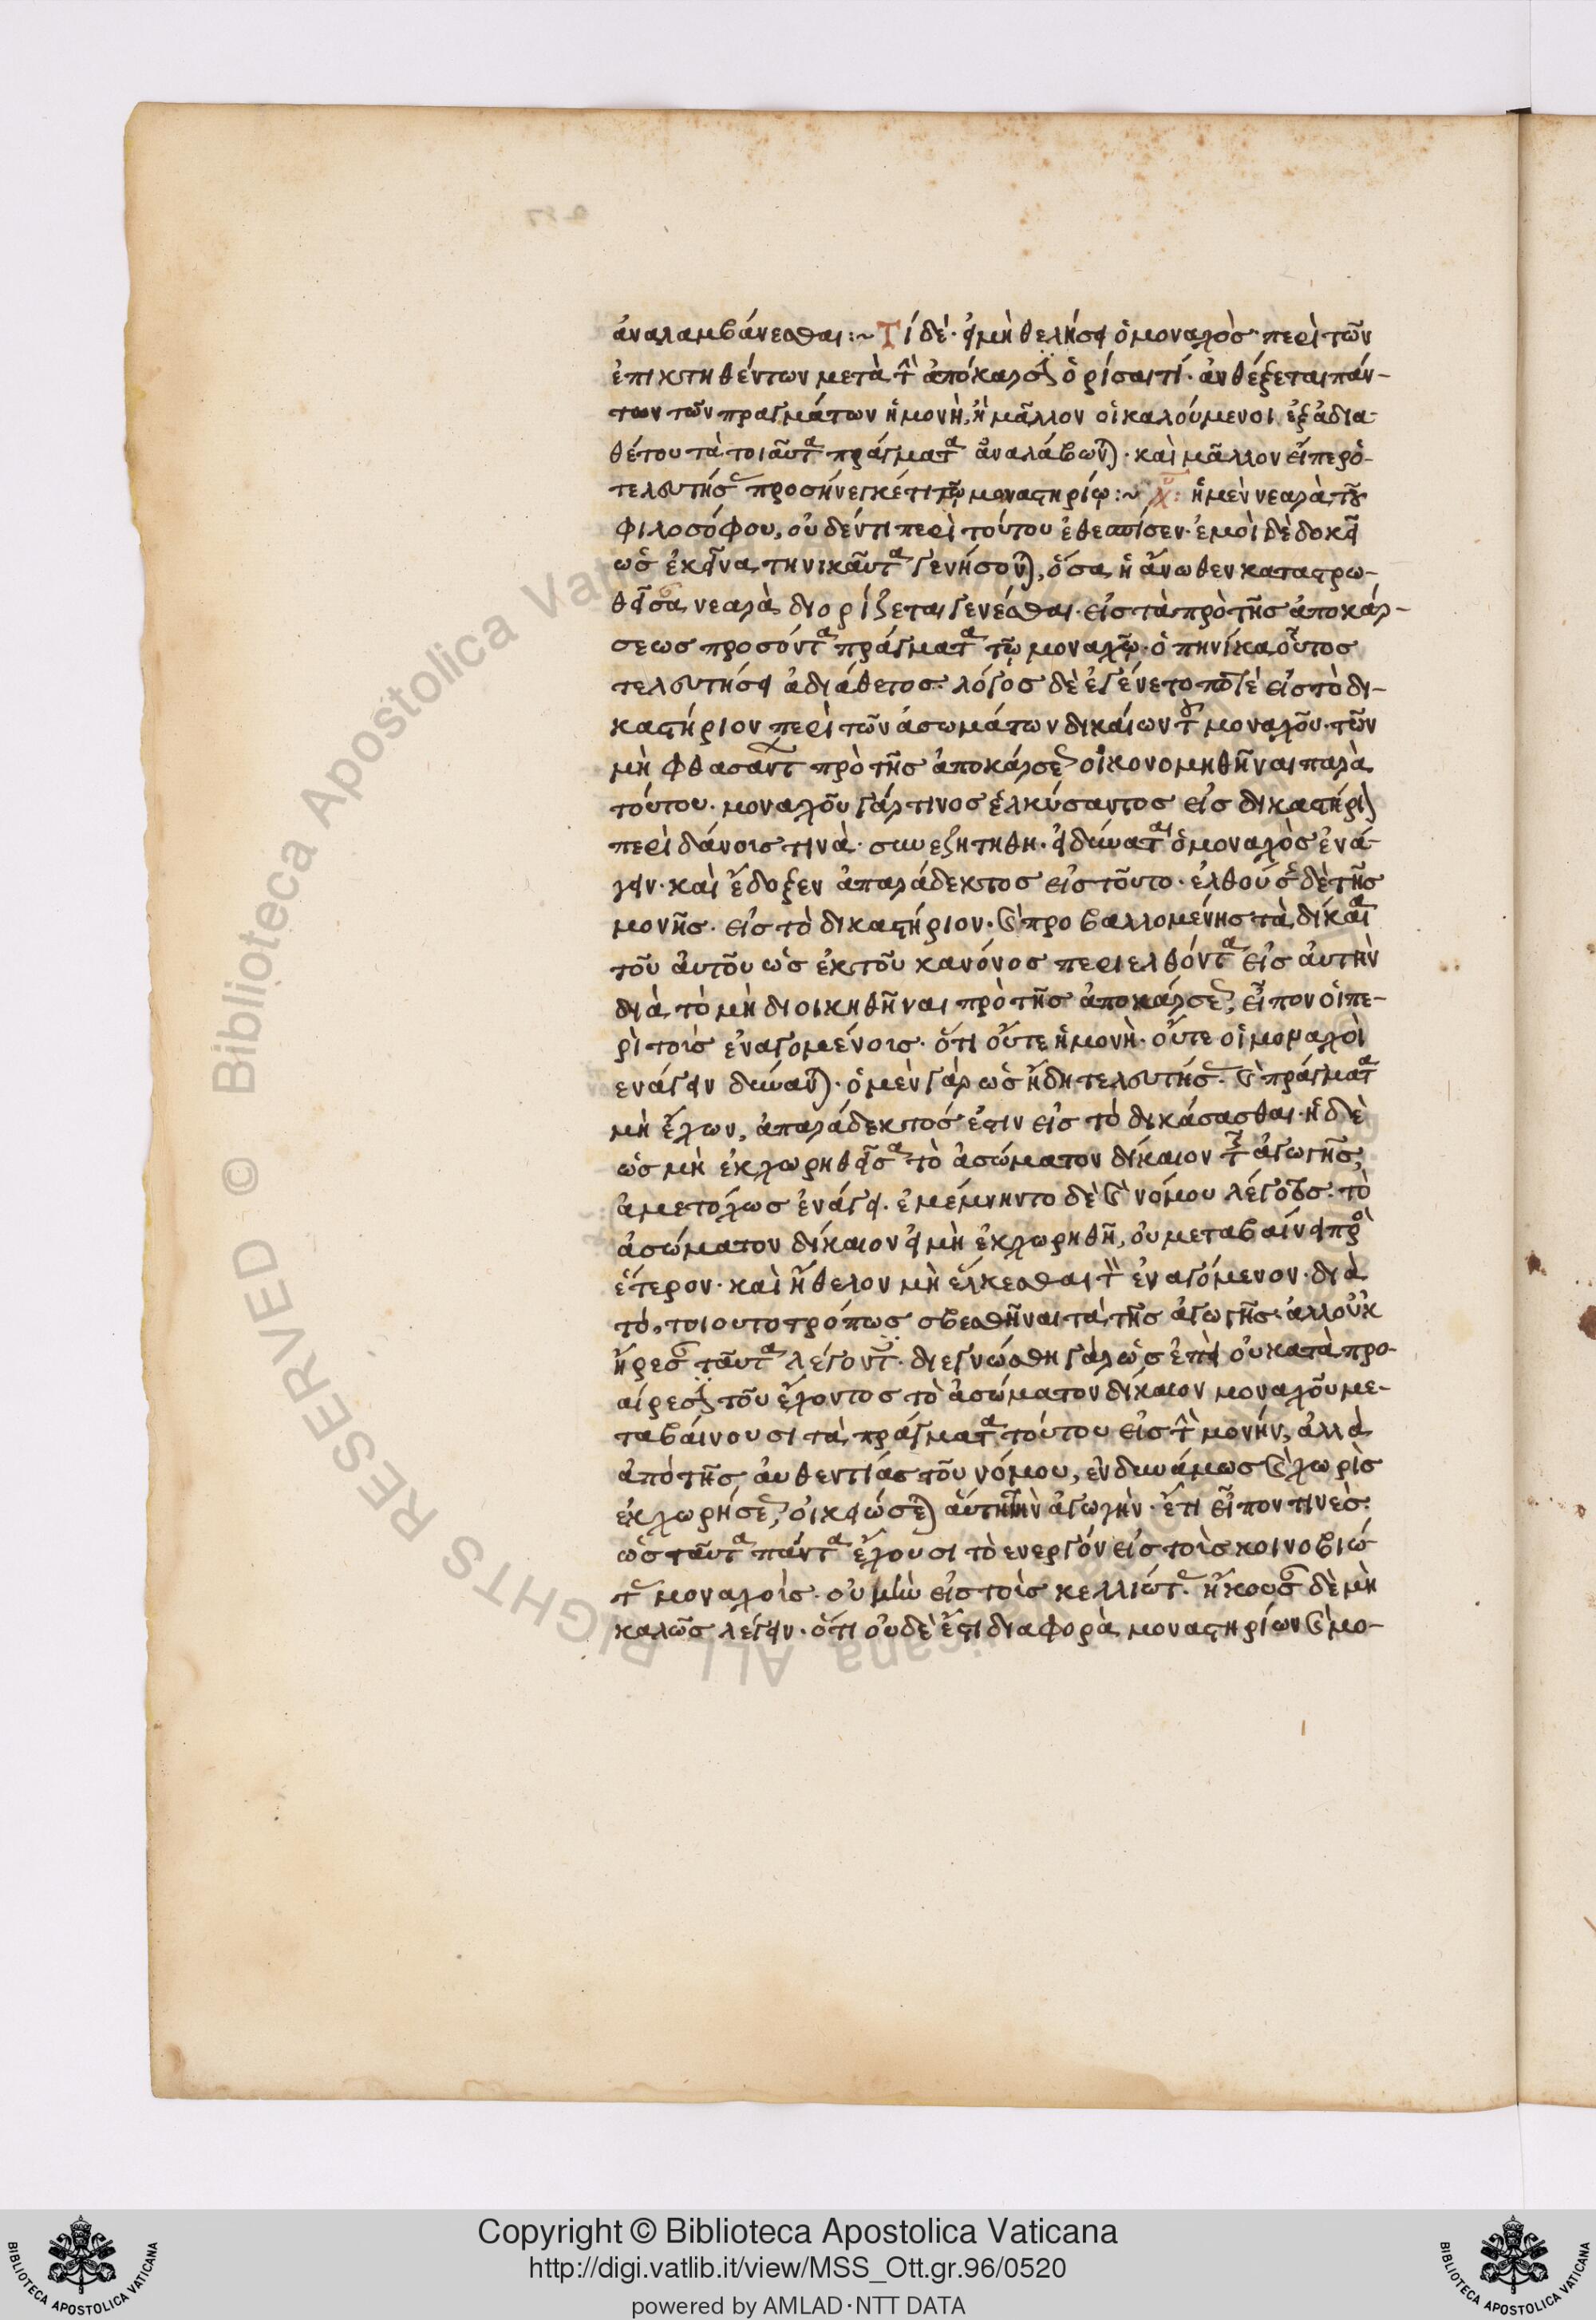 ἀναλαμβάνεσθαι:~ Τί δὲ· εἰ μὴ θελήσει ὁ μοναχὸς περὶ τῶν
ἐπικτηθέντων μετὰ τὴν ἀπόκαρσιν ὁρίσαι τί· ἀνθέξεται πάν-
των τῶν πραγμάτων ἡ μονὴ, ἢ μᾶλλον οἱ καλούμενοι ἐξ ἀδια-
θέτου τὰ τοιαῦτα πράγματα ἀναλάβωνται· καὶ μᾶλλον εἴπερ ὁ
τελευτήσας προσήνεγκέ τι τῷ μοναστηρίῳ:~ ἡ μὲν νεαρὰ τοῦ
φιλοσόφου, οὐδέν τι περὶ τούτου ἐθεσπίσεν· ἐμοὶ δὲ δοκεῖ
ὡς ἐκεῖνα τηνικαῦτα γενήσονται, ὅσα ἡ ἄνωθεν καταστρω-
θεῖσα νεαρὰ διορίζεται γενέσθαι· εἰς τὰ πρὸ τῆς ἀποκάρ-
σεως προσόντα πράγματα τῷ μοναχῷ· ὁπηνίκα οὗτος
τελευτήσει ἀδιάθετος· λόγος δὲ ἐγένετο ποτὲ εἰς τὸ δι-
καστήριον περὶ τῶν ἀσωμάτων δικαίων τοῦ μοναχοῦ· τῶν
μὴ φθασάντων πρὸ τῆς ἀποκάρσεως οἰκονομηθῆναι παρὰ
τούτου· μοναχοῦ γάρ τινος ἑλκύσαντος εἰς δικαστήριον
περὶ δάνοις τινὰ· συνεζητήθη· εἰ δύναται ὁ μοναχὸς ἐνά-
γειν· καὶ ἔδοξεν ἀπαράδεκτος εἰς τοῦτο· ἐλθούσης δὲ τῆς
μονῆς· εἰς τὸ δικαστήριον· καὶ προβαλλομένης τὰ δίκαια
τοῦ αὐτοῦ ὡς ἐκ τοῦ κανόνος περιελθόντα εἰς αὐτὴν
διὰ τὸ μὴ διοικηθῆναι πρὸ τῆς ἀποκάρσεως, εἶπον οἱ πε-
ρὶ τοῖς ἐναγομένοις· ὅτι οὔτε ἡ μονὴ· οὔτε οἱ μοναχοὶ
ενάγειν δύνανται· ὁ μὲν γὰρ ὡς ἤδη τελευτήσας· καὶ πράγματα
μὴ ἔχων, ἀπαράδεκτός ἐστιν εἰς τὸ δικάσασθαι· ἡ δὲ
ὡς μὴ ἐκχωρηθεῖσα τὸ ἀσώματον δίκαιον τῆς ἀγωγῆς,
ἀμετόχως ἐνάγει· ἐμέμνηντο δὲ καὶ νόμου λέγοντος· τὸ
ἀσώματον δίκαιον εἰ μὴ ἐκχωρηθῆ, οὐ μεταβαίνει πρὸς
ἕτερον· καὶ ἤθελον μὴ ἕλκεσθαι τὸν ἐναγόμενον· διὰ
τὸ, τοιουτοτρόπως σβεσθῆναι τὰ τῆς ἀγωγῆς· ἀλλ' οὐκ
ἤρεσαν ταῦτα λέγοντες· διεγνώσθη γὰρ ὡς ἐπεὶ οὐ κατὰ προ-
αίρεσιν τοῦ ἔχοντος τὸ ἀσώματον δίκαιον μοναχοῦ με-
ταβαίνουσι τὰ πράγματα τούτου εἰς τὴν μονήν, ἀλλὰ
ἀπὸ τῆς αὐθεντίας τοῦ νόμου, ἐνδυνάμως καὶ χωρὶς
ἐκχωρήσεως, οἰκειώσεται αὕτη τὴν ἀγωγὴν· ἔτι εἶπον τινὲς
ὡς ταῦτα πάντα ἔχουσι τὸ ενεργόν εἰς τοῖς κοινοβιώ
ταις μοναχοῖς· οὐ μὴν εἰς τοῖς κελλιώταις· ἤκουσαν δὲ μὴ
καλῶς λέγειν· ὅτι οὐδὲ ἔστι διαφορὰ μοναστηρίων καὶ μο-
Copyright © Biblioteca Apostolica Vaticana
http://digi.vatlib.it/view/MSS_Ott.gr.96/0520
powered by AMLAD·NTT DATA